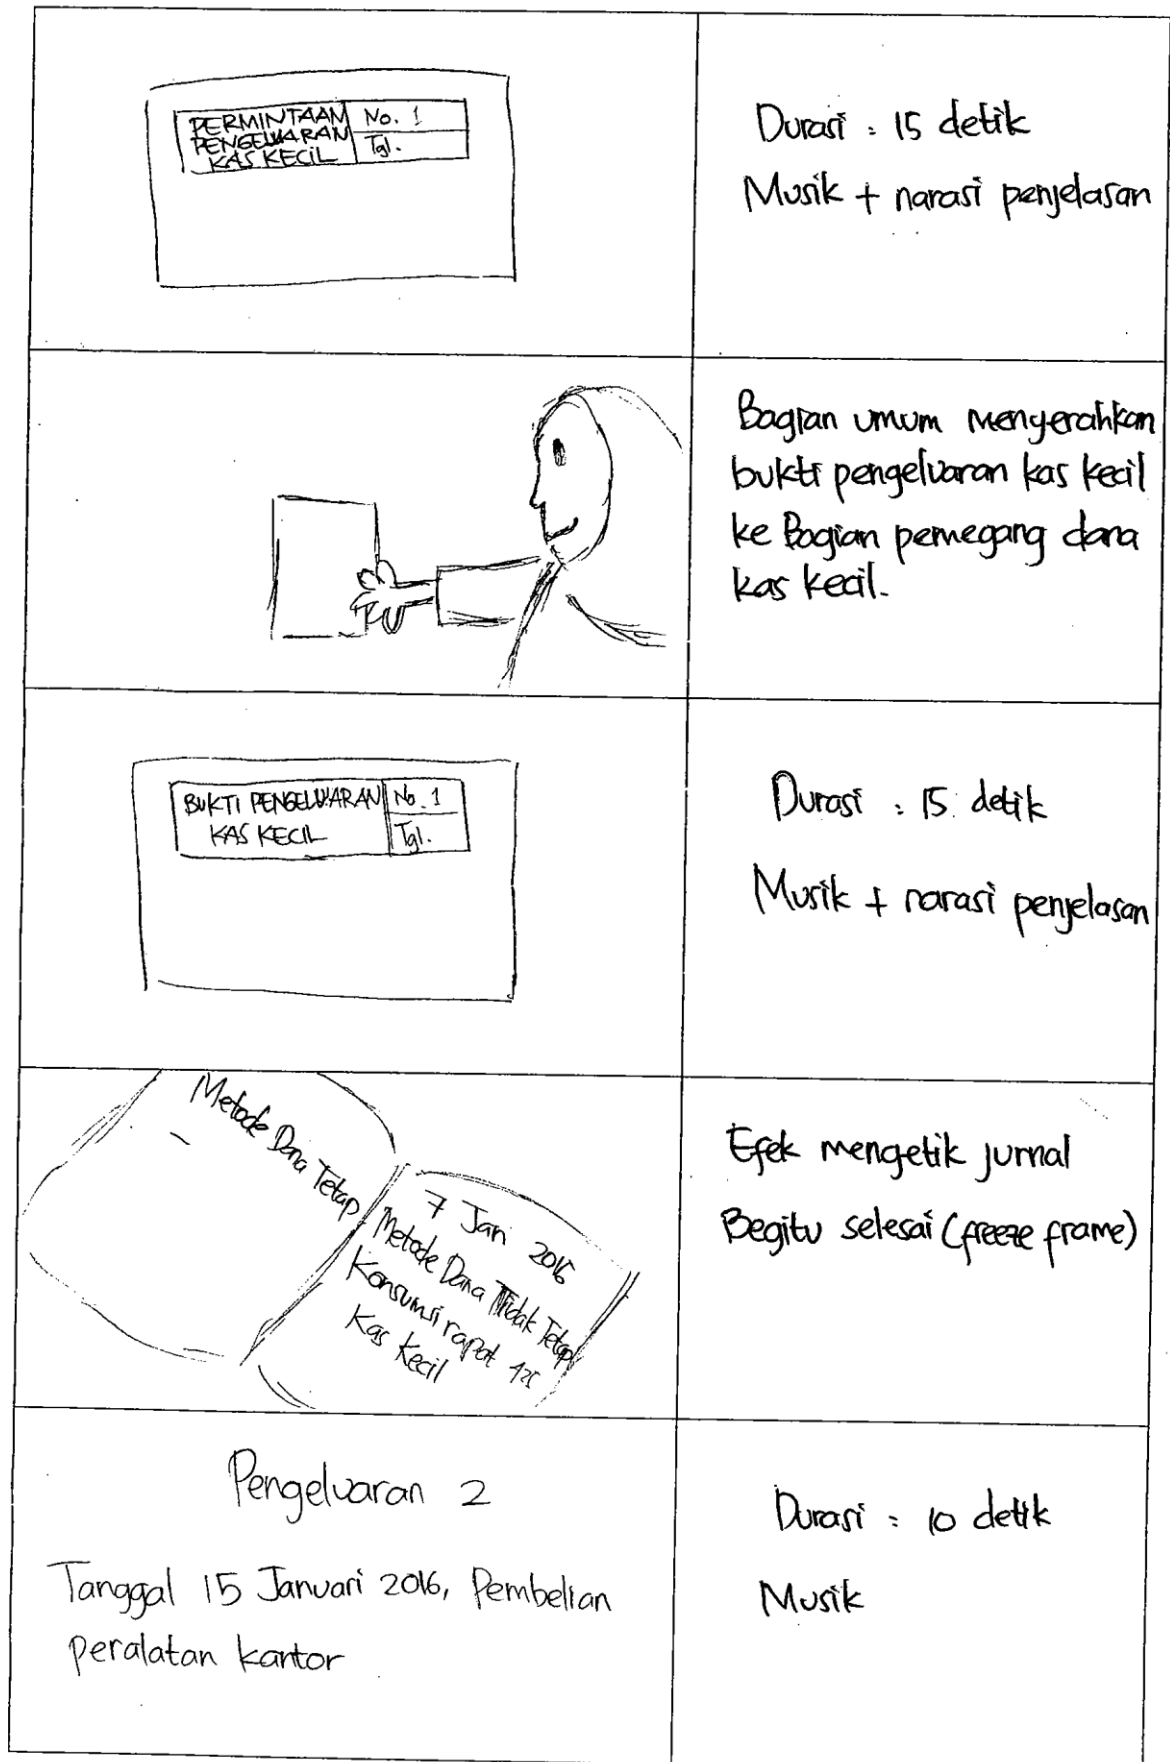 PERMINTAAN
PENGELUARAN
KAS KECIL
No. 1
Tgl.
Durasi : 15 detik
Musik + narasi penjelasan
Bagian umum menyerahkan
bukti pengeluaran kas kecil
ke Bagian pemegang dana
kas kecil.
BUKTI PENGELUARAN
KAS KECIL
No. 1
Tgl.
Durasi : 15 detik
Musik + narasi penjelasan
Metode Dana Tetap
7 Jan 2016
Metode Dana Tidak Tetap
Konsumsi rapat
Kas Kecil
Efek mengetik jurnal
Begitu selesai (freeze frame)
Pengeluaran 2
Tanggal 15 Januari 2016, Pembelian
peralatan kantor
Durasi : 10 detik
Musik